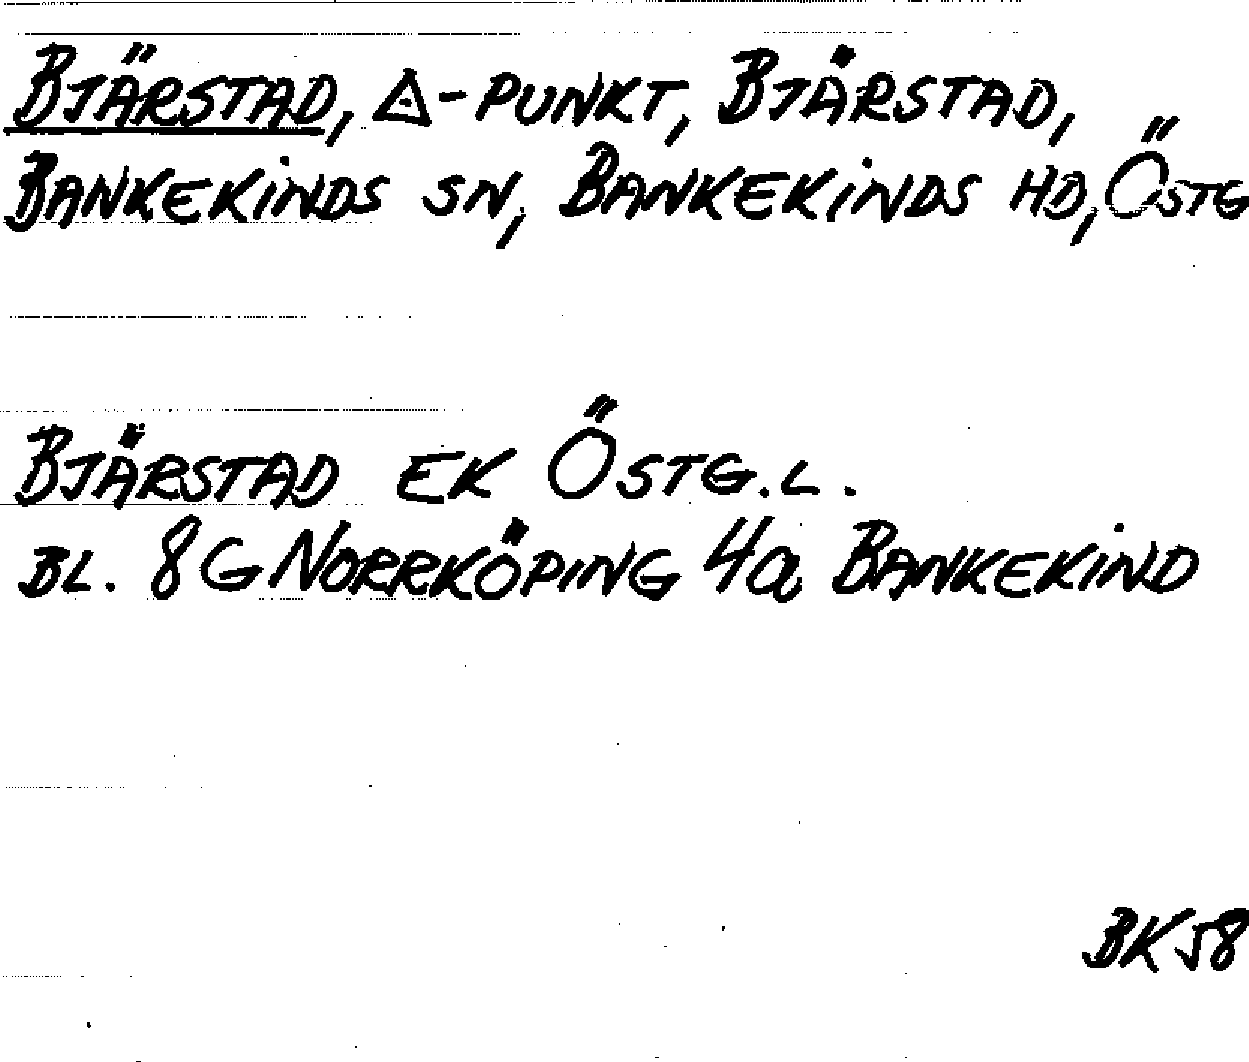 BJÄRSTAD, △-PUNKT, BJÄRSTAD,
BANKEKINDS SN, BANKEKINDS HD, ÖSTG
BJÄRSTAD EK ÖSTG.L.
BL. 8G NORRKÖPING 4a BANKEKIND
BK58